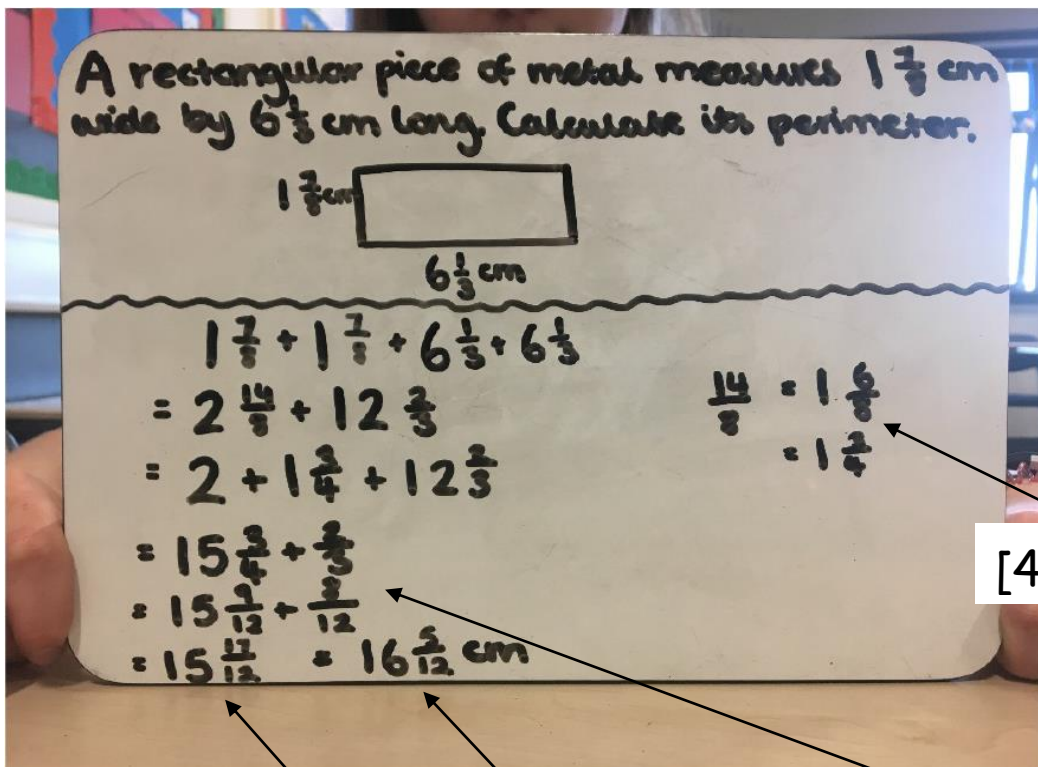 A rectangular piece of metal measures 1 7/8 cm
wide by 6 1/3 cm long. Calculate its perimeter.
1 7/8 cm
6 1/3 cm
1 7/8 + 1 7/8 + 6 1/3 + 6 1/3
= 2 14/8 + 12 2/3
= 2 + 1 3/4 + 12 2/3
= 15 3/4 + 2/3
= 15 9/12 + 8/12
= 15 17/12 = 16 5/12 cm
14/8 = 1 6/8
= 1 3/4
[4